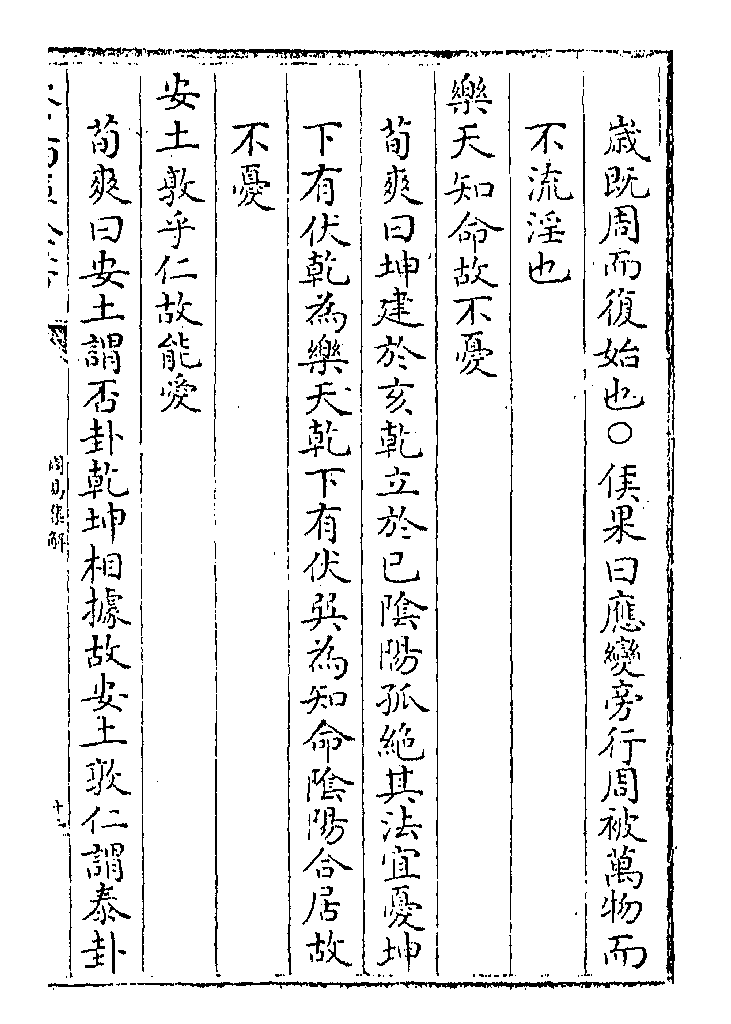 歳既周而復始也〇侯果曰應變旁行周被萬物而
不流淫也
樂天知命故不憂
荀爽曰坤建於亥乾立於巳陰陽孤絶其法宜憂坤
下有伏乾為樂天乾下有伏巽為知命陰陽合居故
不憂
安土敦乎仁故能愛
荀爽曰安土謂否卦乾坤相據故安土敦仁謂泰卦
周易集解